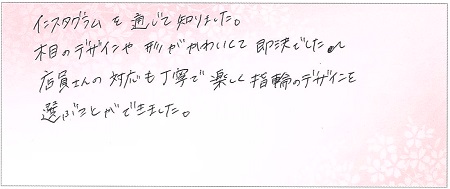 インスタグラムを通じて知りました。
木目のデザインや形がかわいくて即決でした〜
店員さんの対応も丁寧で楽しく指輪のデザインを
選ぶことができました。